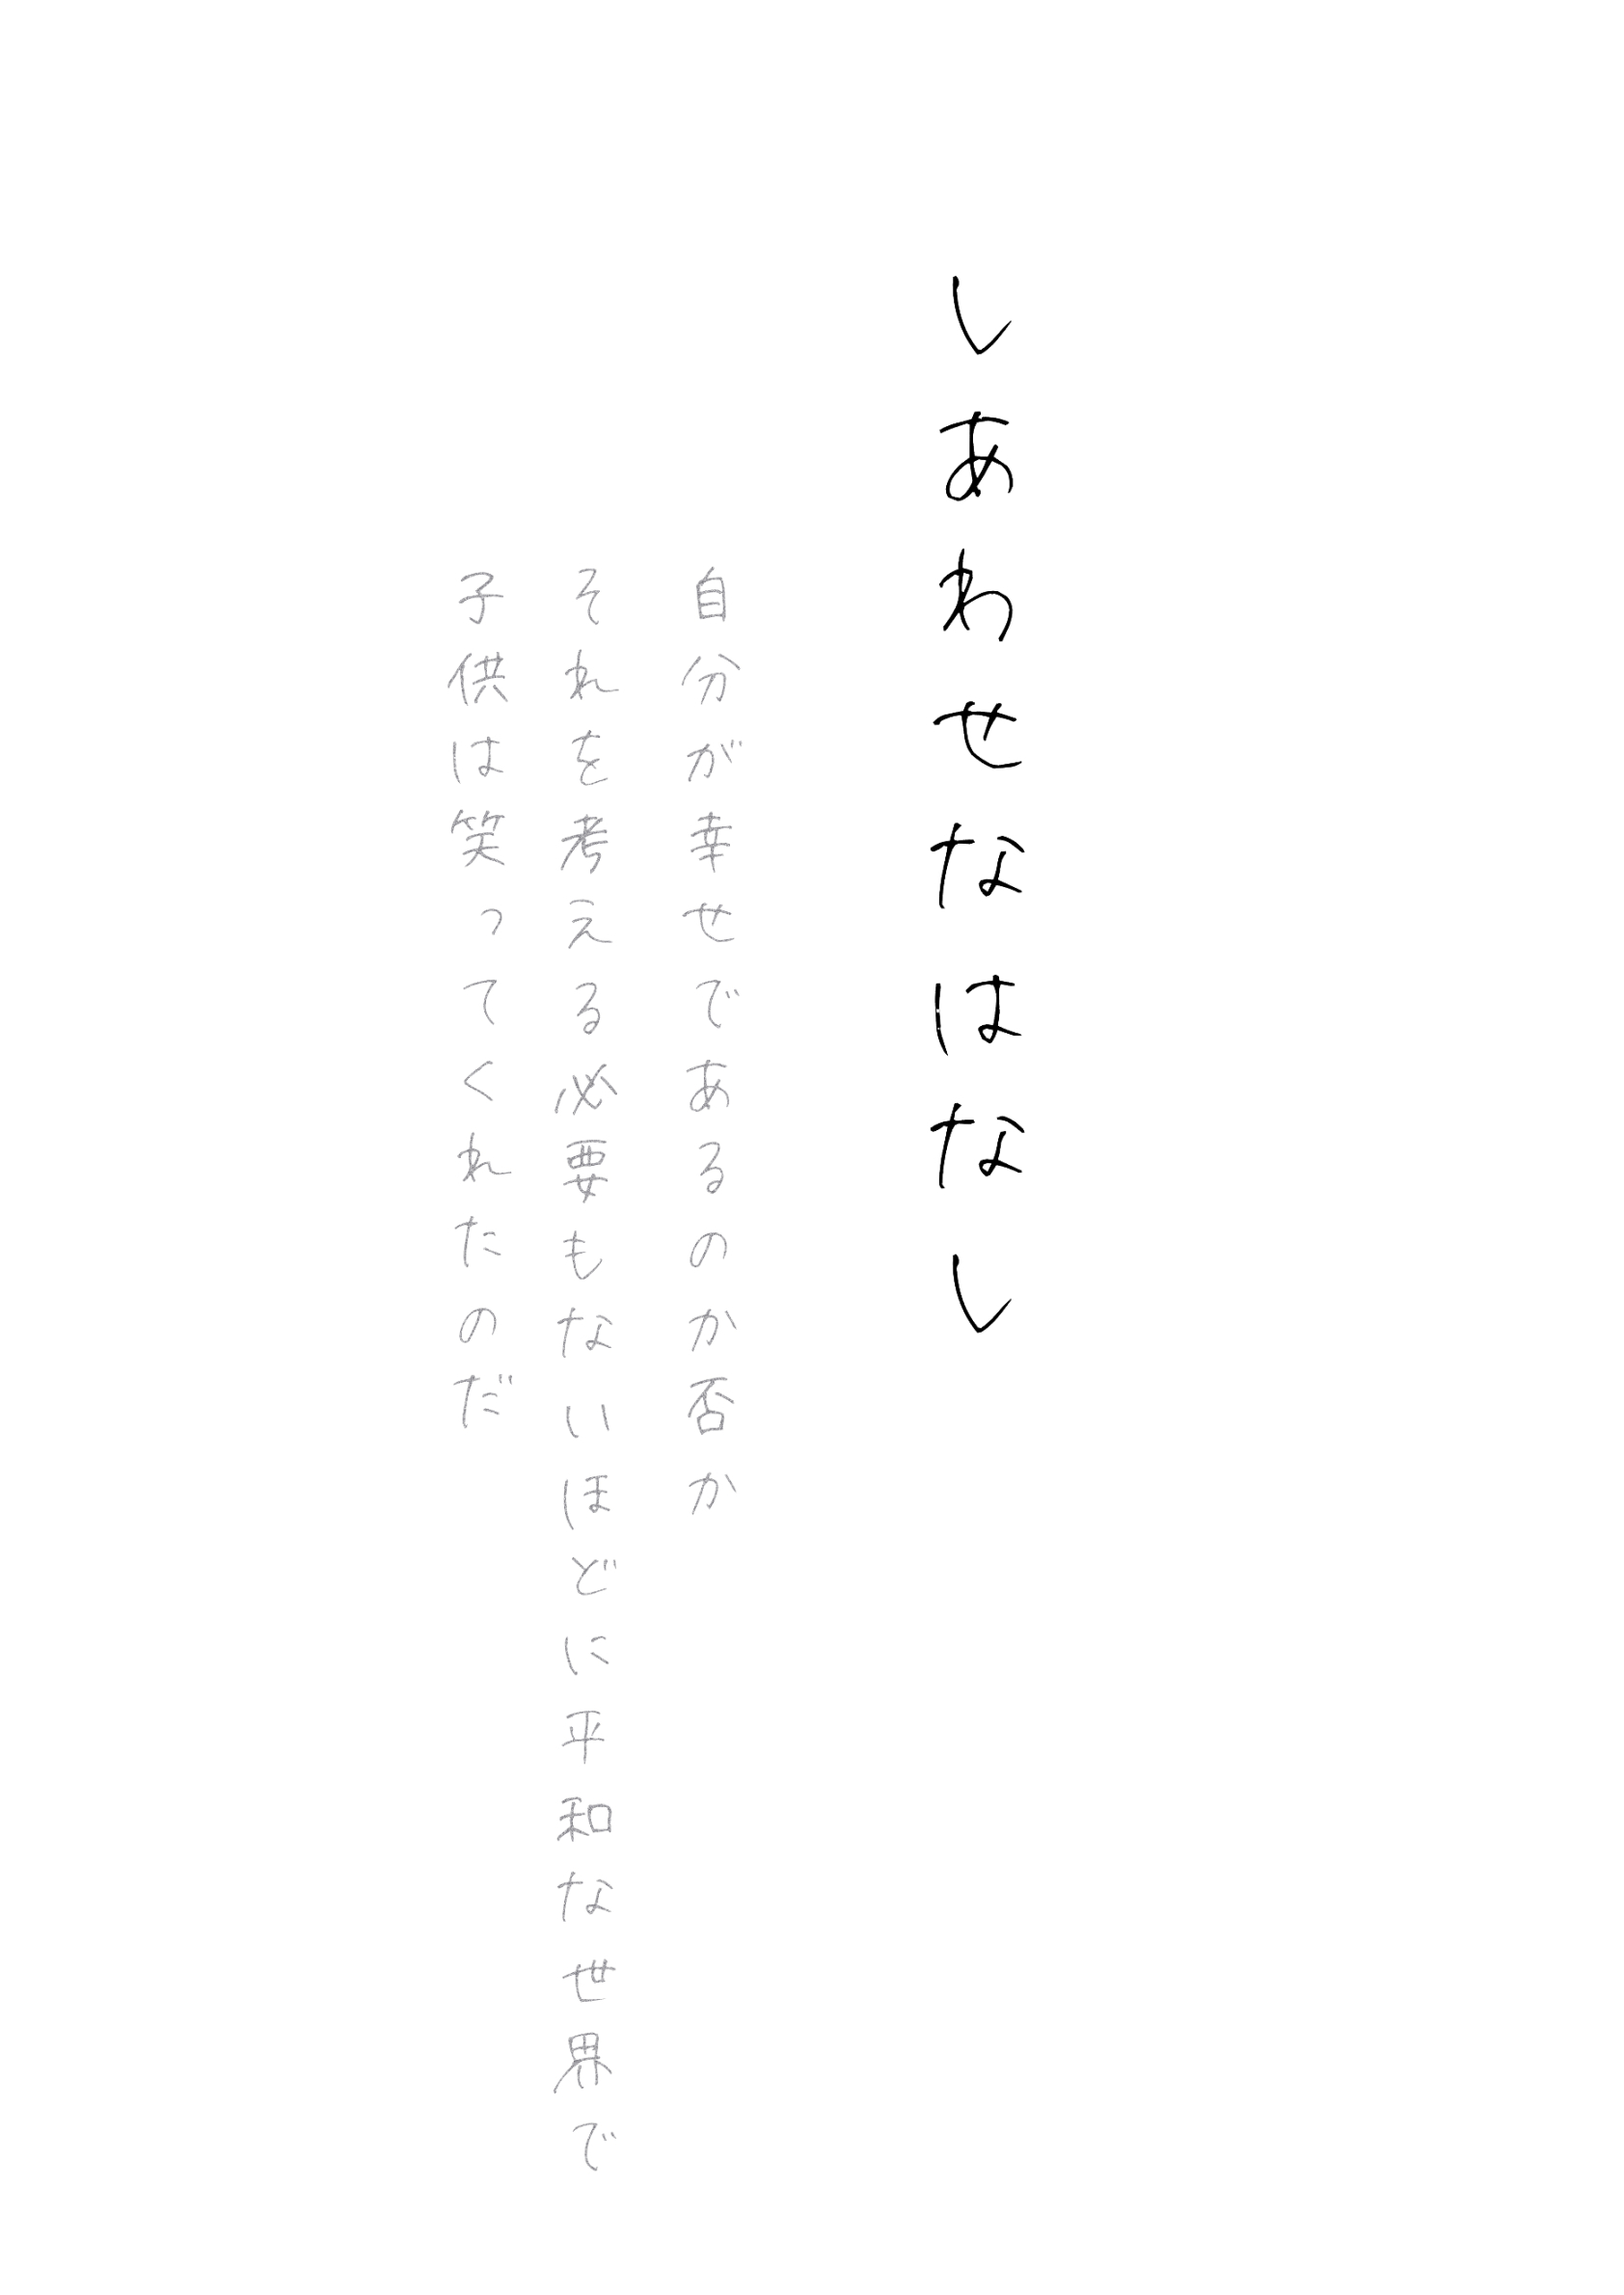 しあわせなはなし
自分が幸せであるのか否か
それを考える必要もないほどに平和な世界で
子供は笑ってくれたのだ